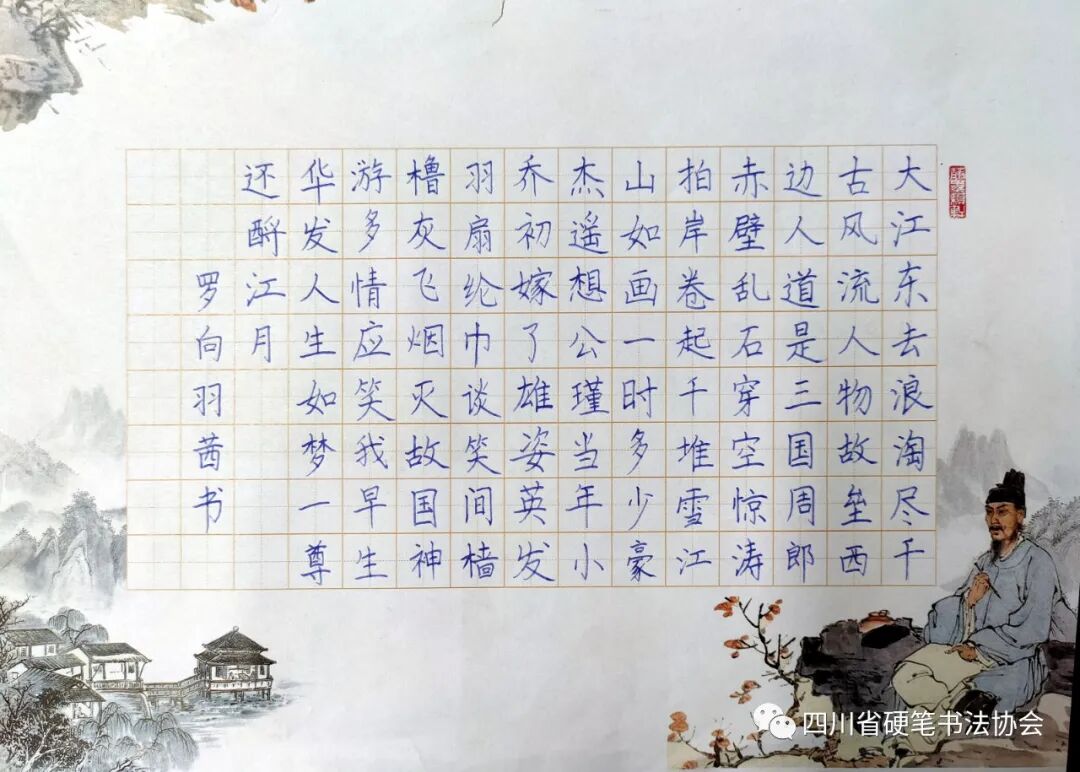 大江东去浪淘尽千
古风流人物故垒西
边人道是三国周郎
赤壁乱石穿空惊涛
拍岸卷起千堆雪江
山如画一时多少豪
杰遥想公瑾当年小
乔初嫁了雄姿英发
羽扇纶巾谈笑间樯
橹灰飞烟灭故国神
游多情应笑我早生
华发人生如梦一尊
还酹江月
罗向羽茜书
四川省硬笔书法协会